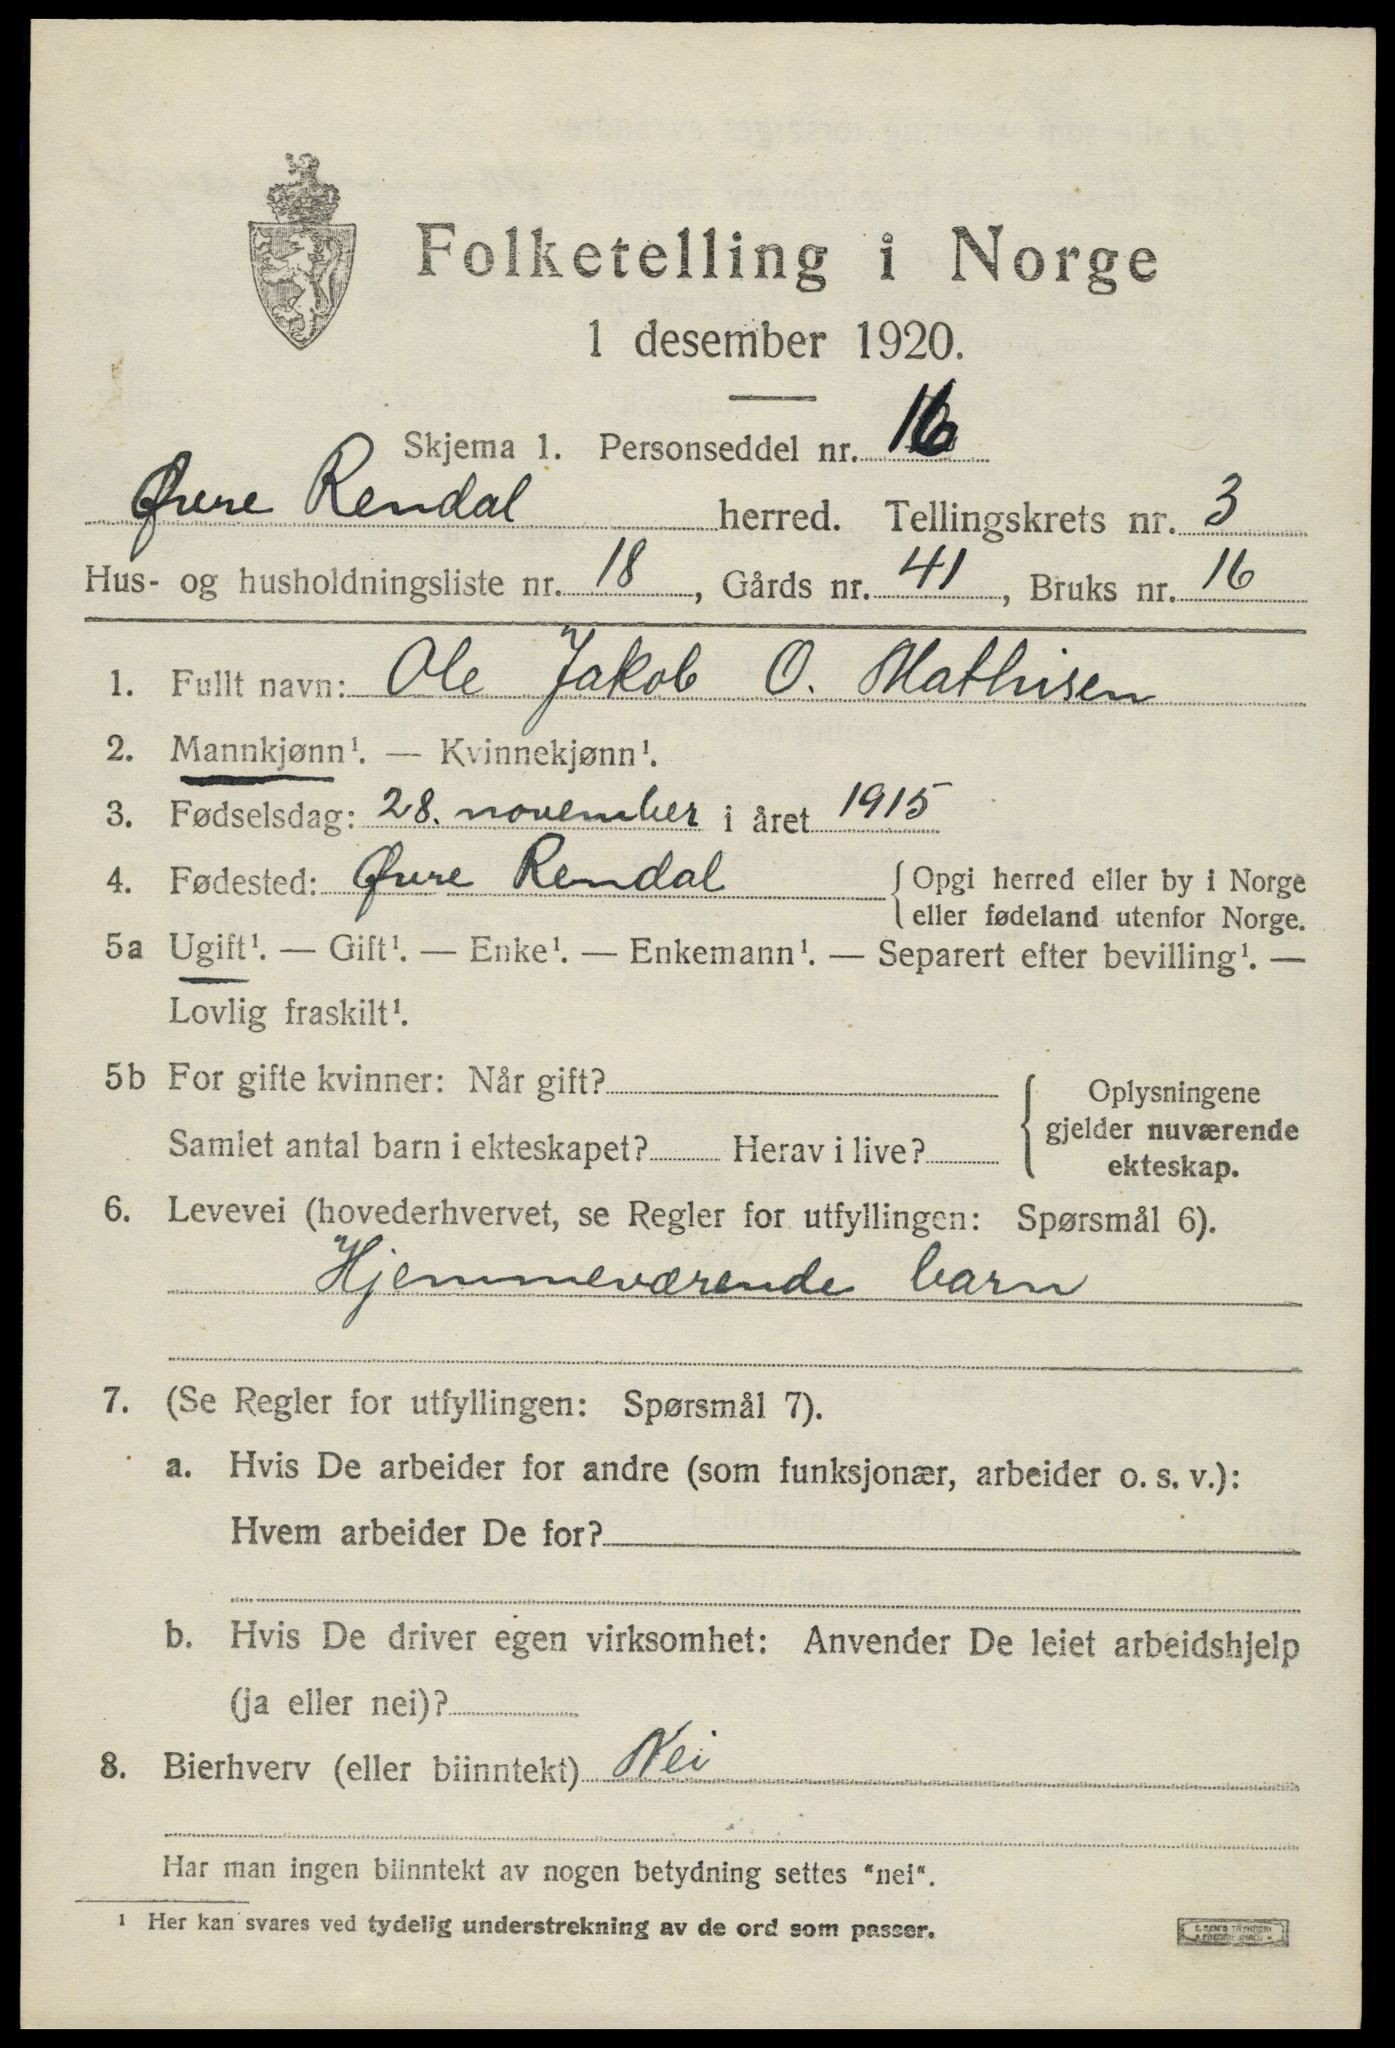 Folketelling i Norge
1 desember 1920.
Skjema 1. Personseddel nr. 16
Øvre Rendal herred. Tellingskrets nr. 3
Hus- og husholdningsliste nr. 18, Gårds nr. 41, Bruks nr. 16
1. Fullt navn: Ole Jakob O. Mathisen
2. Mannkjønn¹. — Kvinnekjønn¹.
3. Fødselsdag: 28. november i året 1915
4. Fødested: Øvre Rendal {Opgi herred eller by i Norge
eller fødeland utenfor Norge.
5a Ugift¹. — Gift¹. — Enke¹. — Enkemann¹. — Separert efter bevilling¹. —
Lovlig fraskilt¹.
5b For gifte kvinner: Når gift?
Samlet antal barn i ekteskapet? Herav i live?
{Oplysningene
gjelder nuværende
ekteskap.
6. Levevei (hovederhvervet, se Regler for utfyllingen: Spørsmål 6).
Hjemmeværende barn
7. (Se Regler for utfyllingen: Spørsmål 7).
a. Hvis De arbeider for andre (som funksjonær, arbeider o. s. v.):
Hvem arbeider De for?
b. Hvis De driver egen virksomhet: Anvender De leiet arbeidshjelp
(ja eller nei)?
8. Bierhverv (eller biinntekt) Nei
Har man ingen biinntekt av nogen betydning settes "nei".
¹ Her kan svares ved tydelig understrekning av de ord som passer.